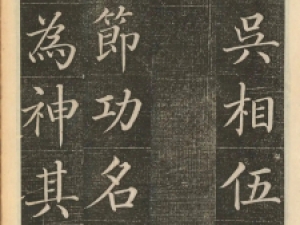 吳相伍
節功名
為神其